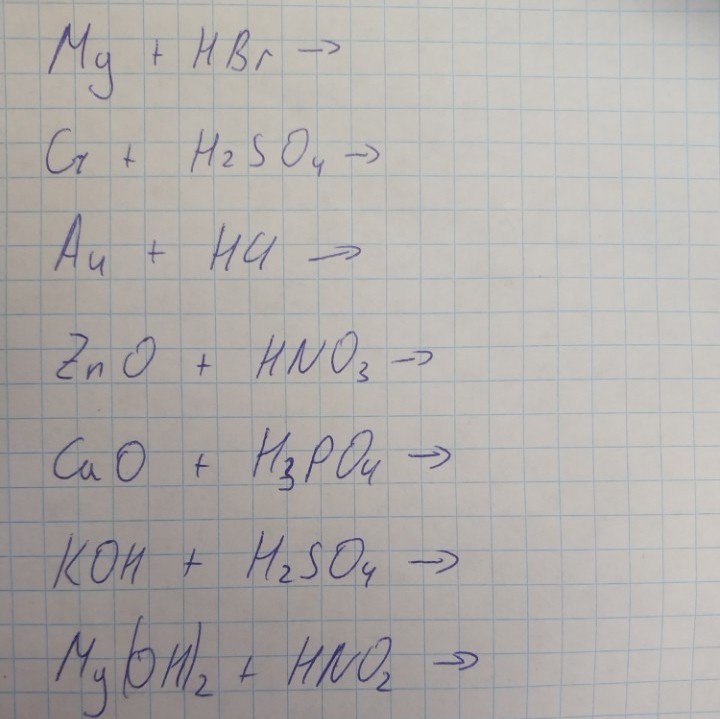 Mg + HBr →
Cr + H₂SO₄ →
Au + HCl →
ZnO + HNO₃ →
CaO + H₃PO₄ →
KOH + H₂SO₄ →
Mg(OH)₂ + HNO₂ →